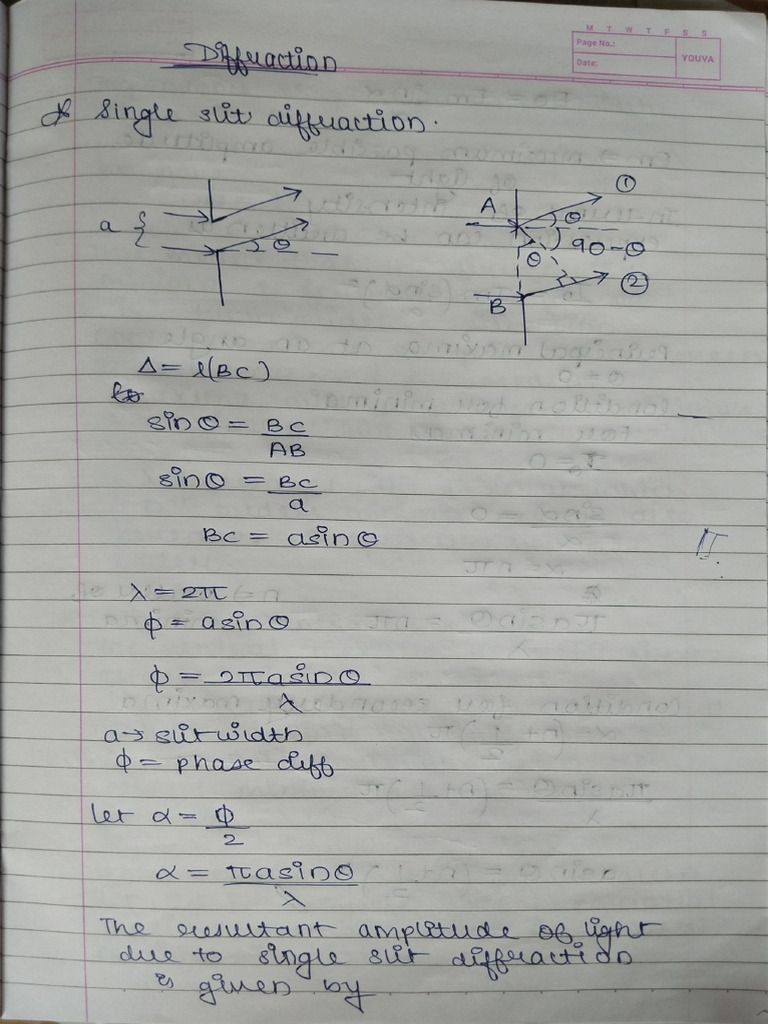 M T W T F S S
Page No.:
Date:
YOUVA
Diffraction
* Single slit diffraction.
a { θ
A θ ①
90-θ
θ
B ②
Δ = l(BC)
sinθ = BC/AB
sinθ = BC/a
BC = asinθ
λ = 2π
ϕ = asinθ
ϕ = 2πasinθ/λ
a → slit width
ϕ = phase diff
let α = ϕ/2
α = πasinθ/λ
The resultant amplitude of light
due to single slit diffraction
is given by